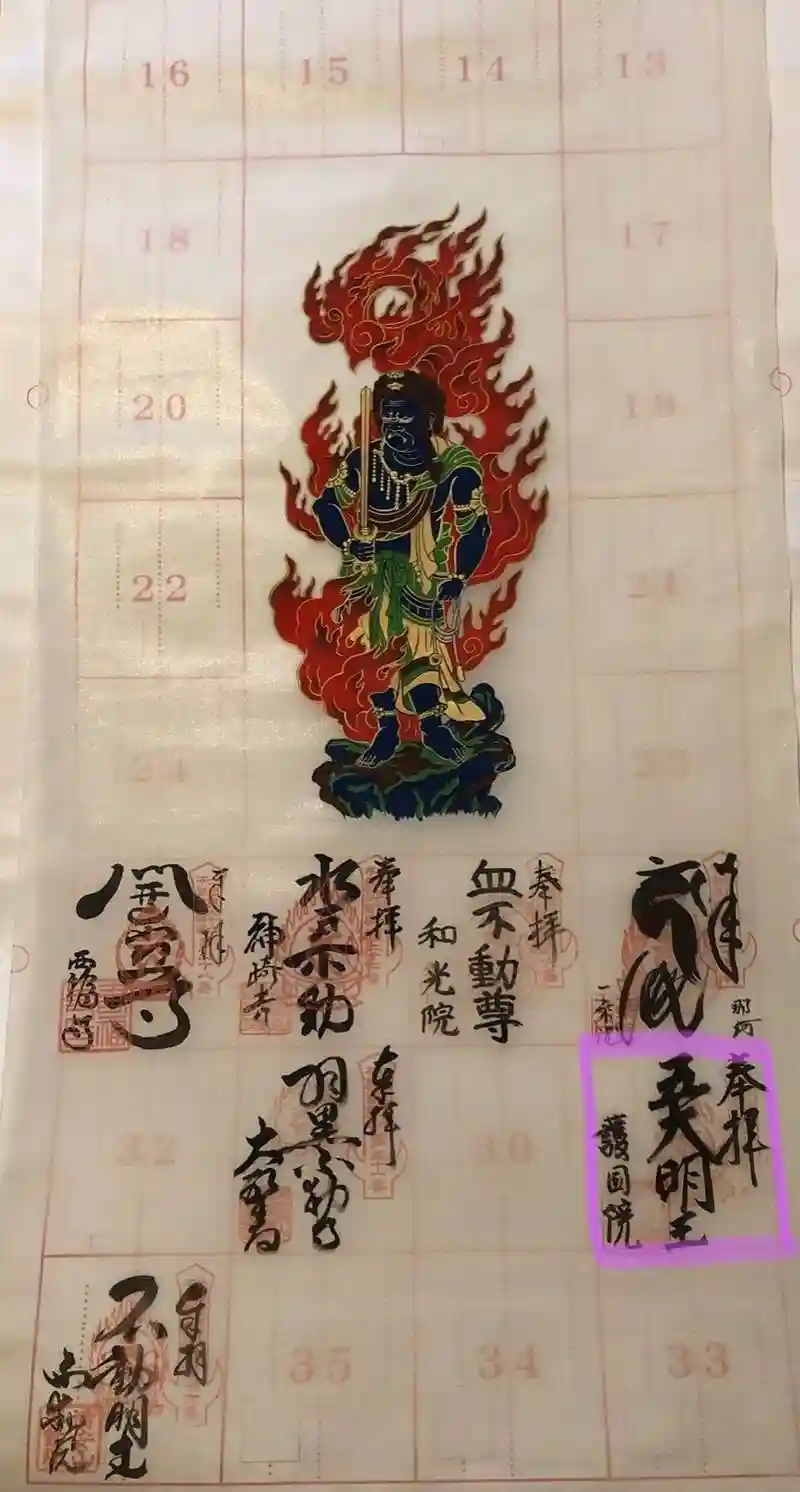 16 15 14 13
18 17
20 19
22 21
24 23
奉拝
一乗院
那珂
奉拝
血不動尊
和光院
奉拝
水戸不動
神崎寺
奉拝
開運
西福
奉拝
五大明王
護国院
30
奉拝
羽黒不動
大聖寺
32
33
34
35
奉拝
不動明王